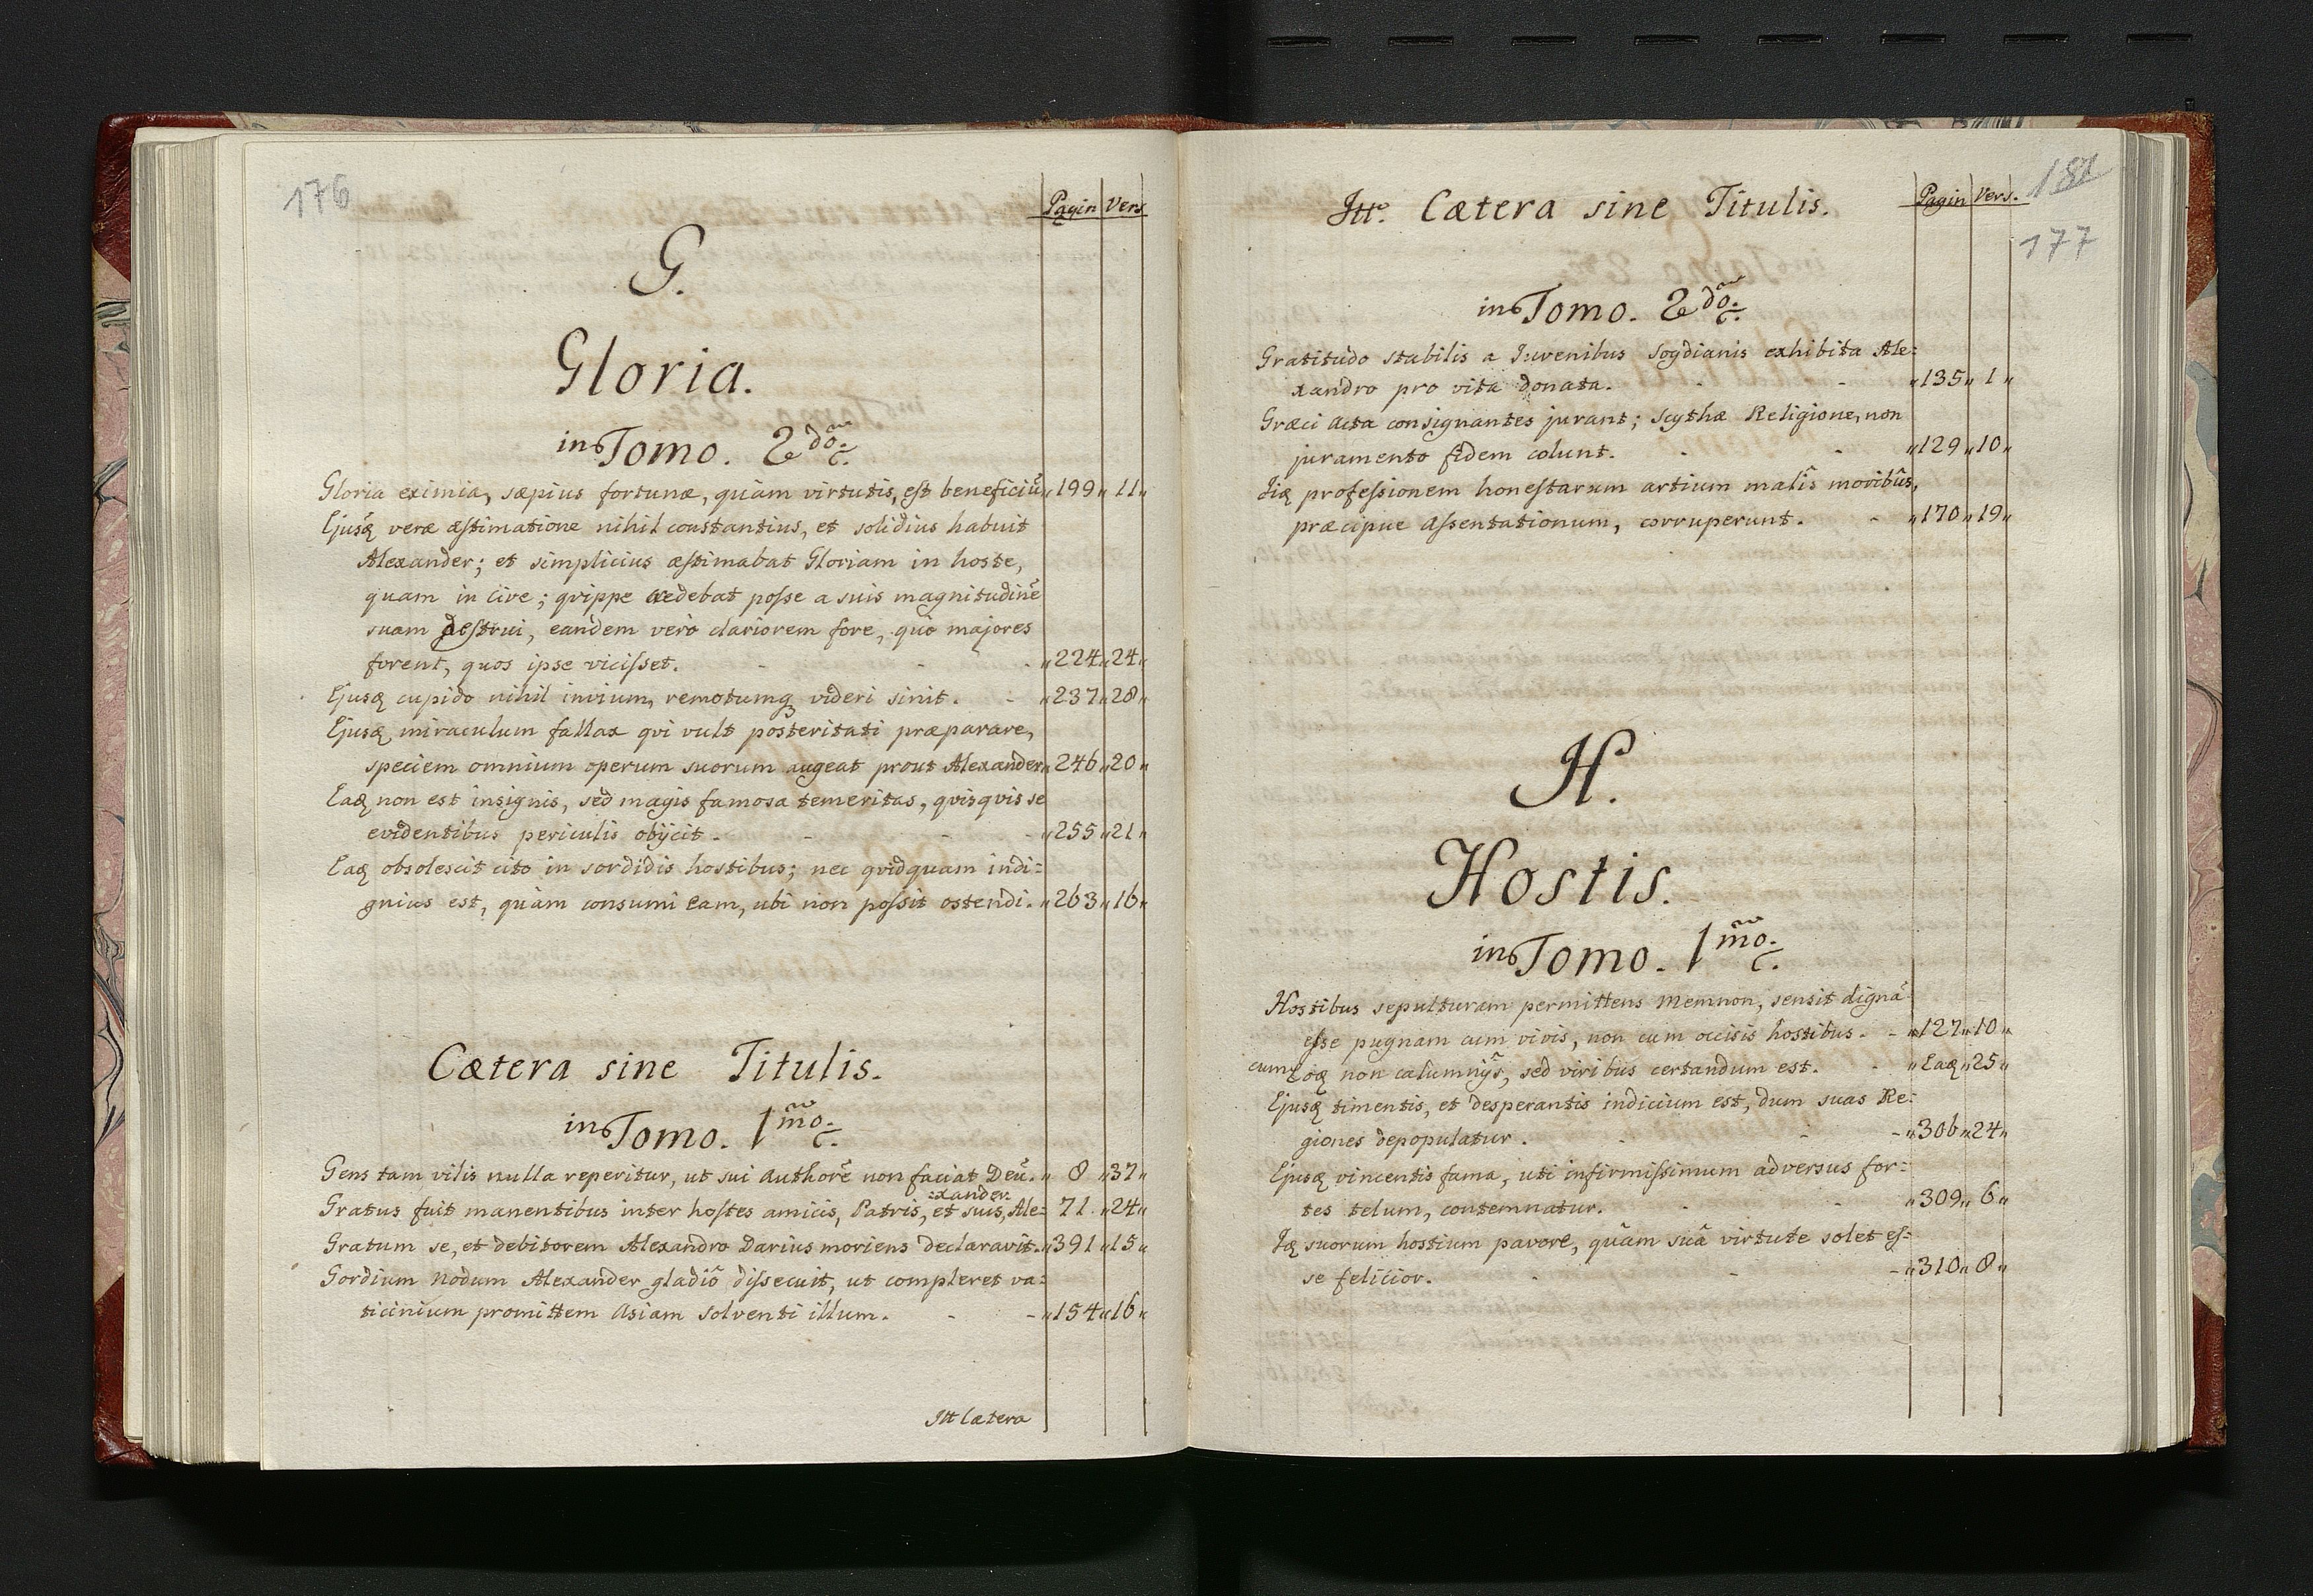 176
Pagin Vers
G.
Gloria.
in Tomo. 2do.
Gloria eximia, sæpius fortunæ, quàm virtutis, est beneficiū „199„11„
Ejusq veræ æstimatione nihil constantius, et solidius habuit
Alexander; et simplicius æstimabat Gloriam in hoste,
quam in Cive; qvippe credebat posse a suis magnitudinē
suam destrui, eandem verò clariorem fore, quò majores
forent, quos ipse vicisset. - - - „224„24„
Ejusq cupido nihil invium, remotumq videri sinit. - „237„28„
Ejusq miraculum fallax qvi vult posteritati præparare,
speciem omnium operum suorum augeat prout Alexander „246„20„
Eaq non est insignis, sed magis famosa temeritas, qvisqvis se
evidentibus periculis obijcit. - - - „255„21„
Eaq obsolescit cito in sordidis hostibus; nec qvidquam indi:
gnius est, quàm consumi Eam, ubi non possit ostendi. „263„16„
Cætera sine Titulis.
in Tomo. 1mo.
Gens tam vilis nulla reperitur, ut sui Authorē non faciat Deū. „ 8 „37„
:xander:
Gratus fuit manentibus inter hostes amicis, Patris, et suis, Ale: 71. „24„
Gratum se, et debitorem Alexandro Darius moriens declaravit. „391„15„
Gordium Nodum Alexander gladiô dissecuit, ut compleret va:
ticinium promittem Asiam solventi illum. - - „154„16„
Itt Cætera
181
Itt. Cætera sine Titulis. Pagin Vers.
177
in Tomo. 2do.
Gratitudo stabilis a Juvenibus Sogdianis exhibita Ale:
xandro pro vita donata. - - „135„1„
Græci Acta consignantes jurant; Scythæ Religione, non
juramento fidem colunt. - - „129„10„
Iiq professionem honestarum artium malîs moribûs,
præcipue Assentationum, corruperunt. - „170„19„
H.
Hostis.
in Tomo. 1mo.
Hostibus sepulturam permittens Memnon, sensit dignā
esse pugnam cum vivis, non cum occisis hostibus. - „127„10„
cum Eoq non calumnijs, sed viribus certandum est. - „Eaq„25„
Ejusq timentis, et desperantis indicium est, dum suas Re:
giones depopulatur. - - - „306„24„
Ejusq vincentis fama, uti infirmissimum adversus for:
tes telum, contemnatur. - - „309„6„
Iq suorum hostium pavore, quâm suâ virtute solet es:
se felicior. - - - „310„8„